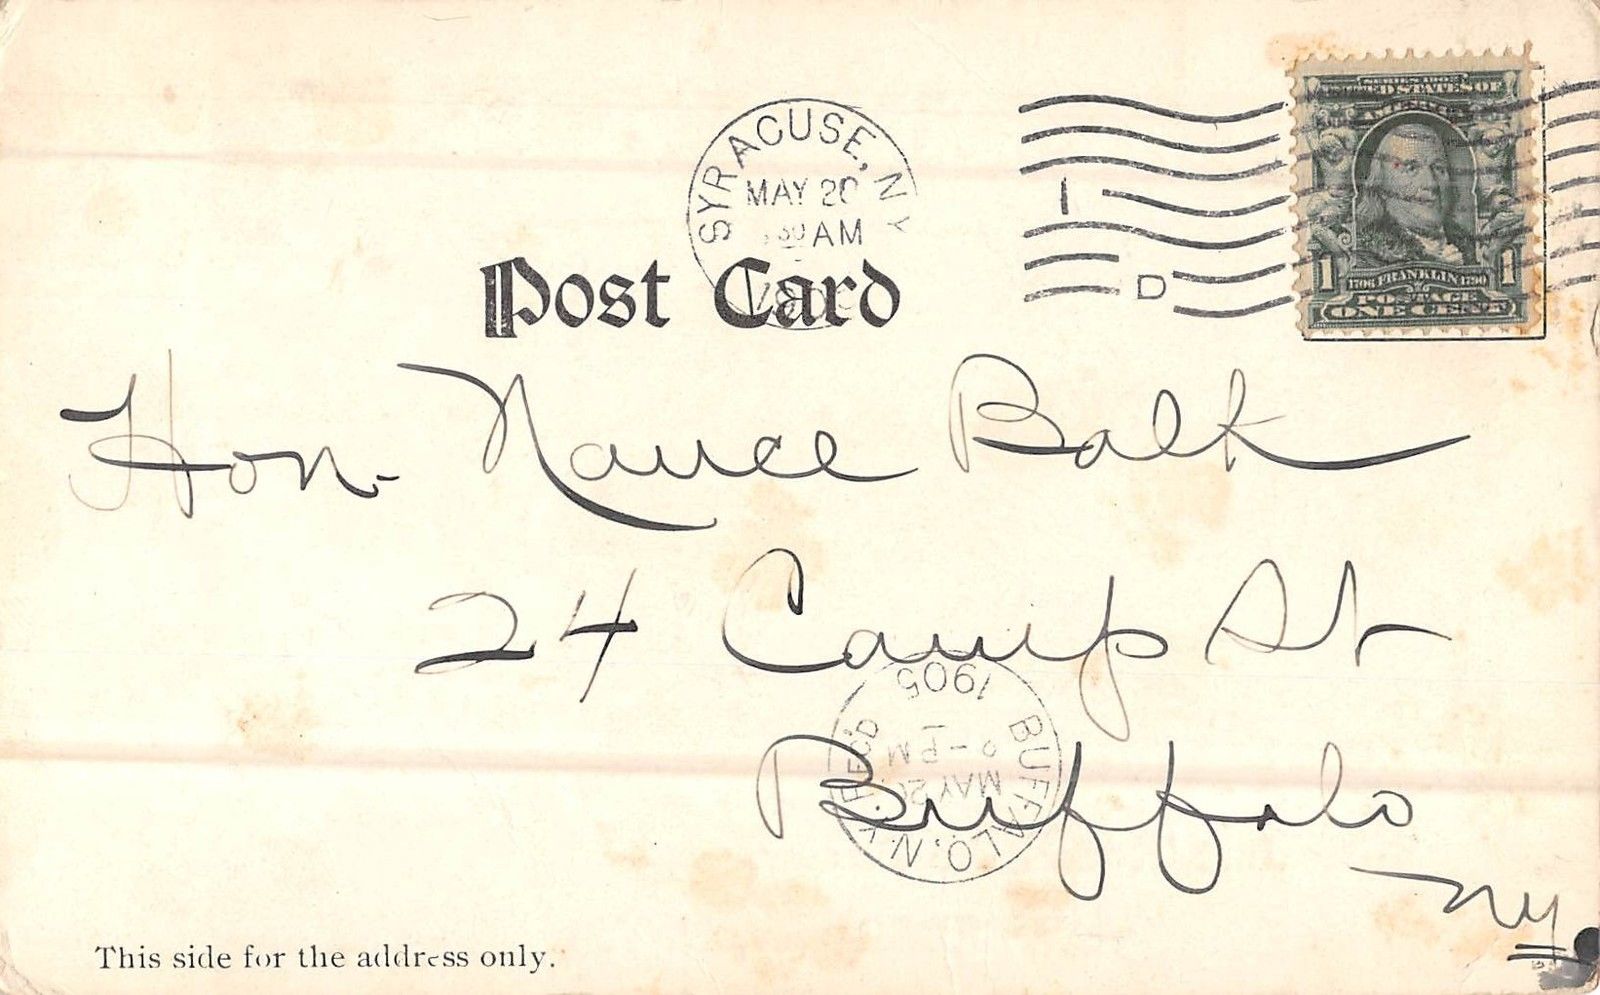 SYRACUSE, N.Y.
MAY 20
30 AM
1905
I
D
SERIES 1902
UNITED STATES OF
AMERICA
1 1
1706 FRANKLIN 1790
POSTAGE
ONE CENT
Post Card
Hon. Nance Balk
24 Camp St
Buffalo
NY
BUFFALO, N.Y. REC'D
MAY 20
1905
This side for the address only.